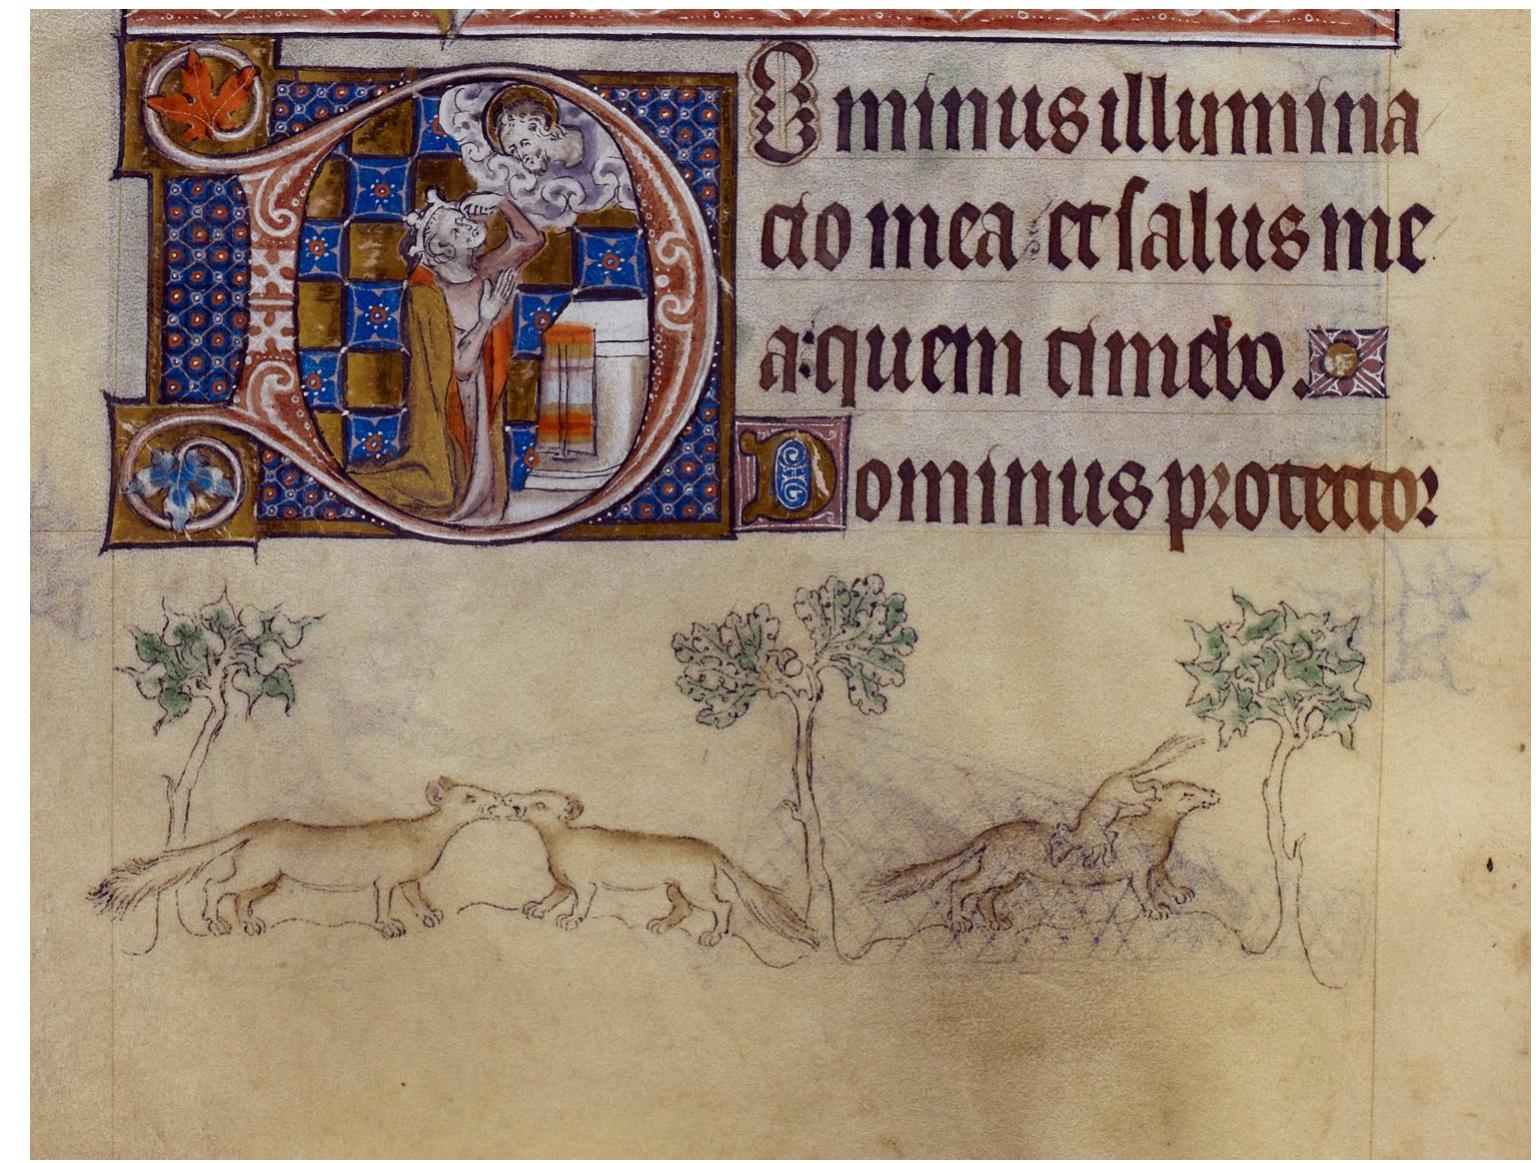 Dominus illumina
cio mea et salus me
a: quem timebo.
Dominus protector